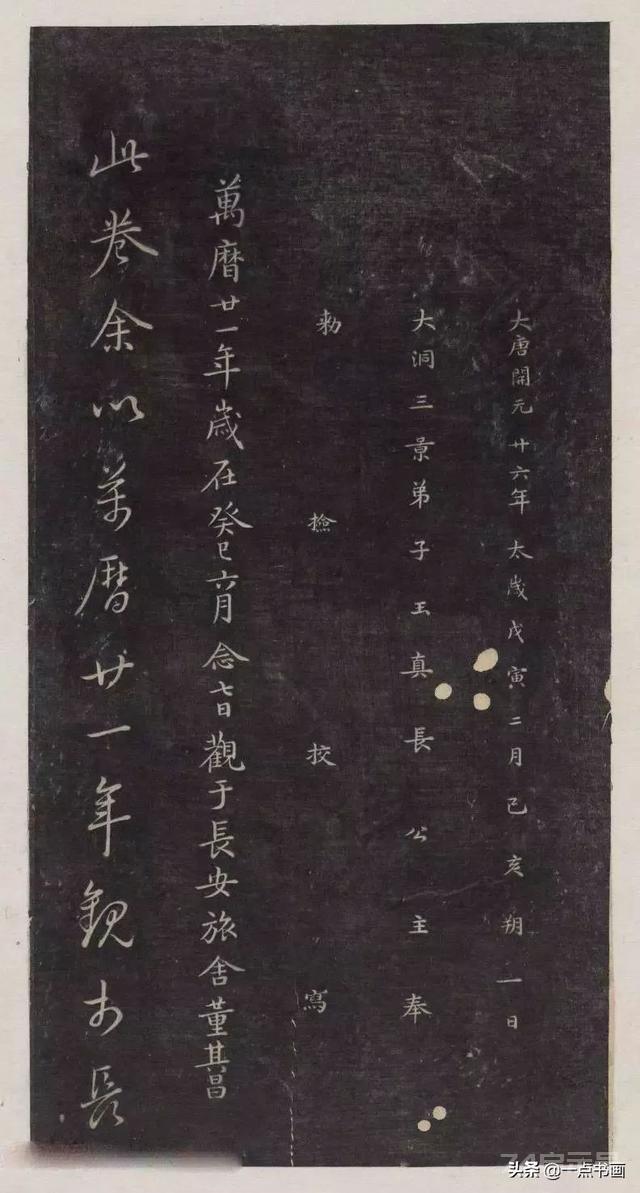 大唐開元廿六年太歲戊寅二月己亥朔一日
大洞三景弟子王真長公主奉
勑檢挍寫
萬曆廿一年歲在癸巳六月念七日觀于長安旅舍董其昌
此卷余以萬曆廿一年觀於長
头条@一点书画